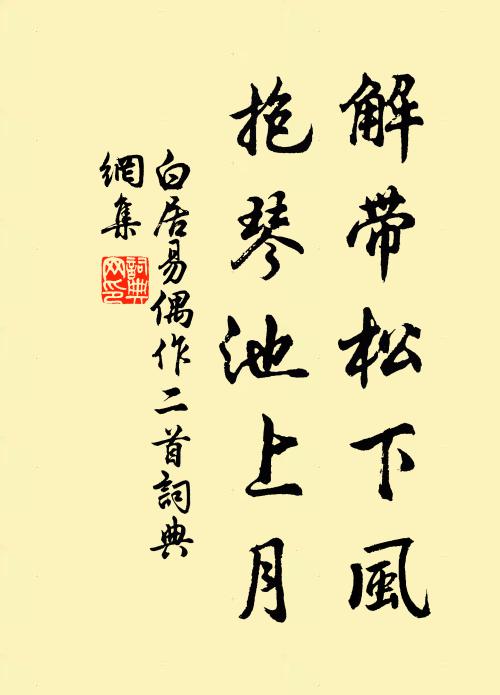 解带松下風
抱琴池上月
白居易偶作二首詞典
網集
詞典
网印